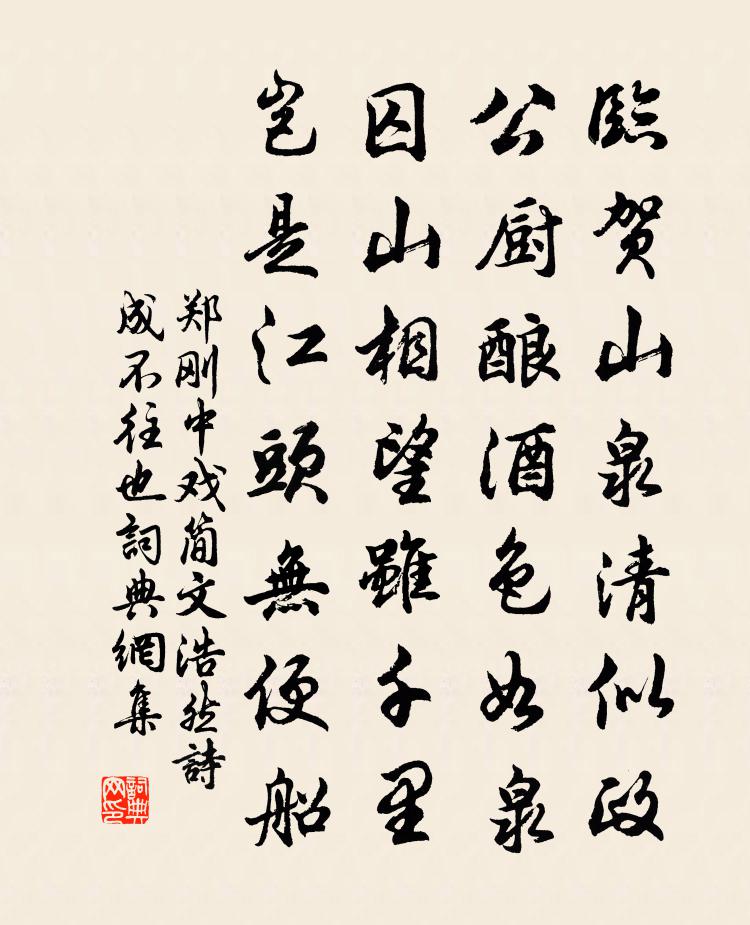 臨贺山泉清似政
公厨酿酒色如泉
囚山相望雖千里
岂是江頭無便船
郑刚中戏简文浩然詩
成不往也詞典網集
詞典网印